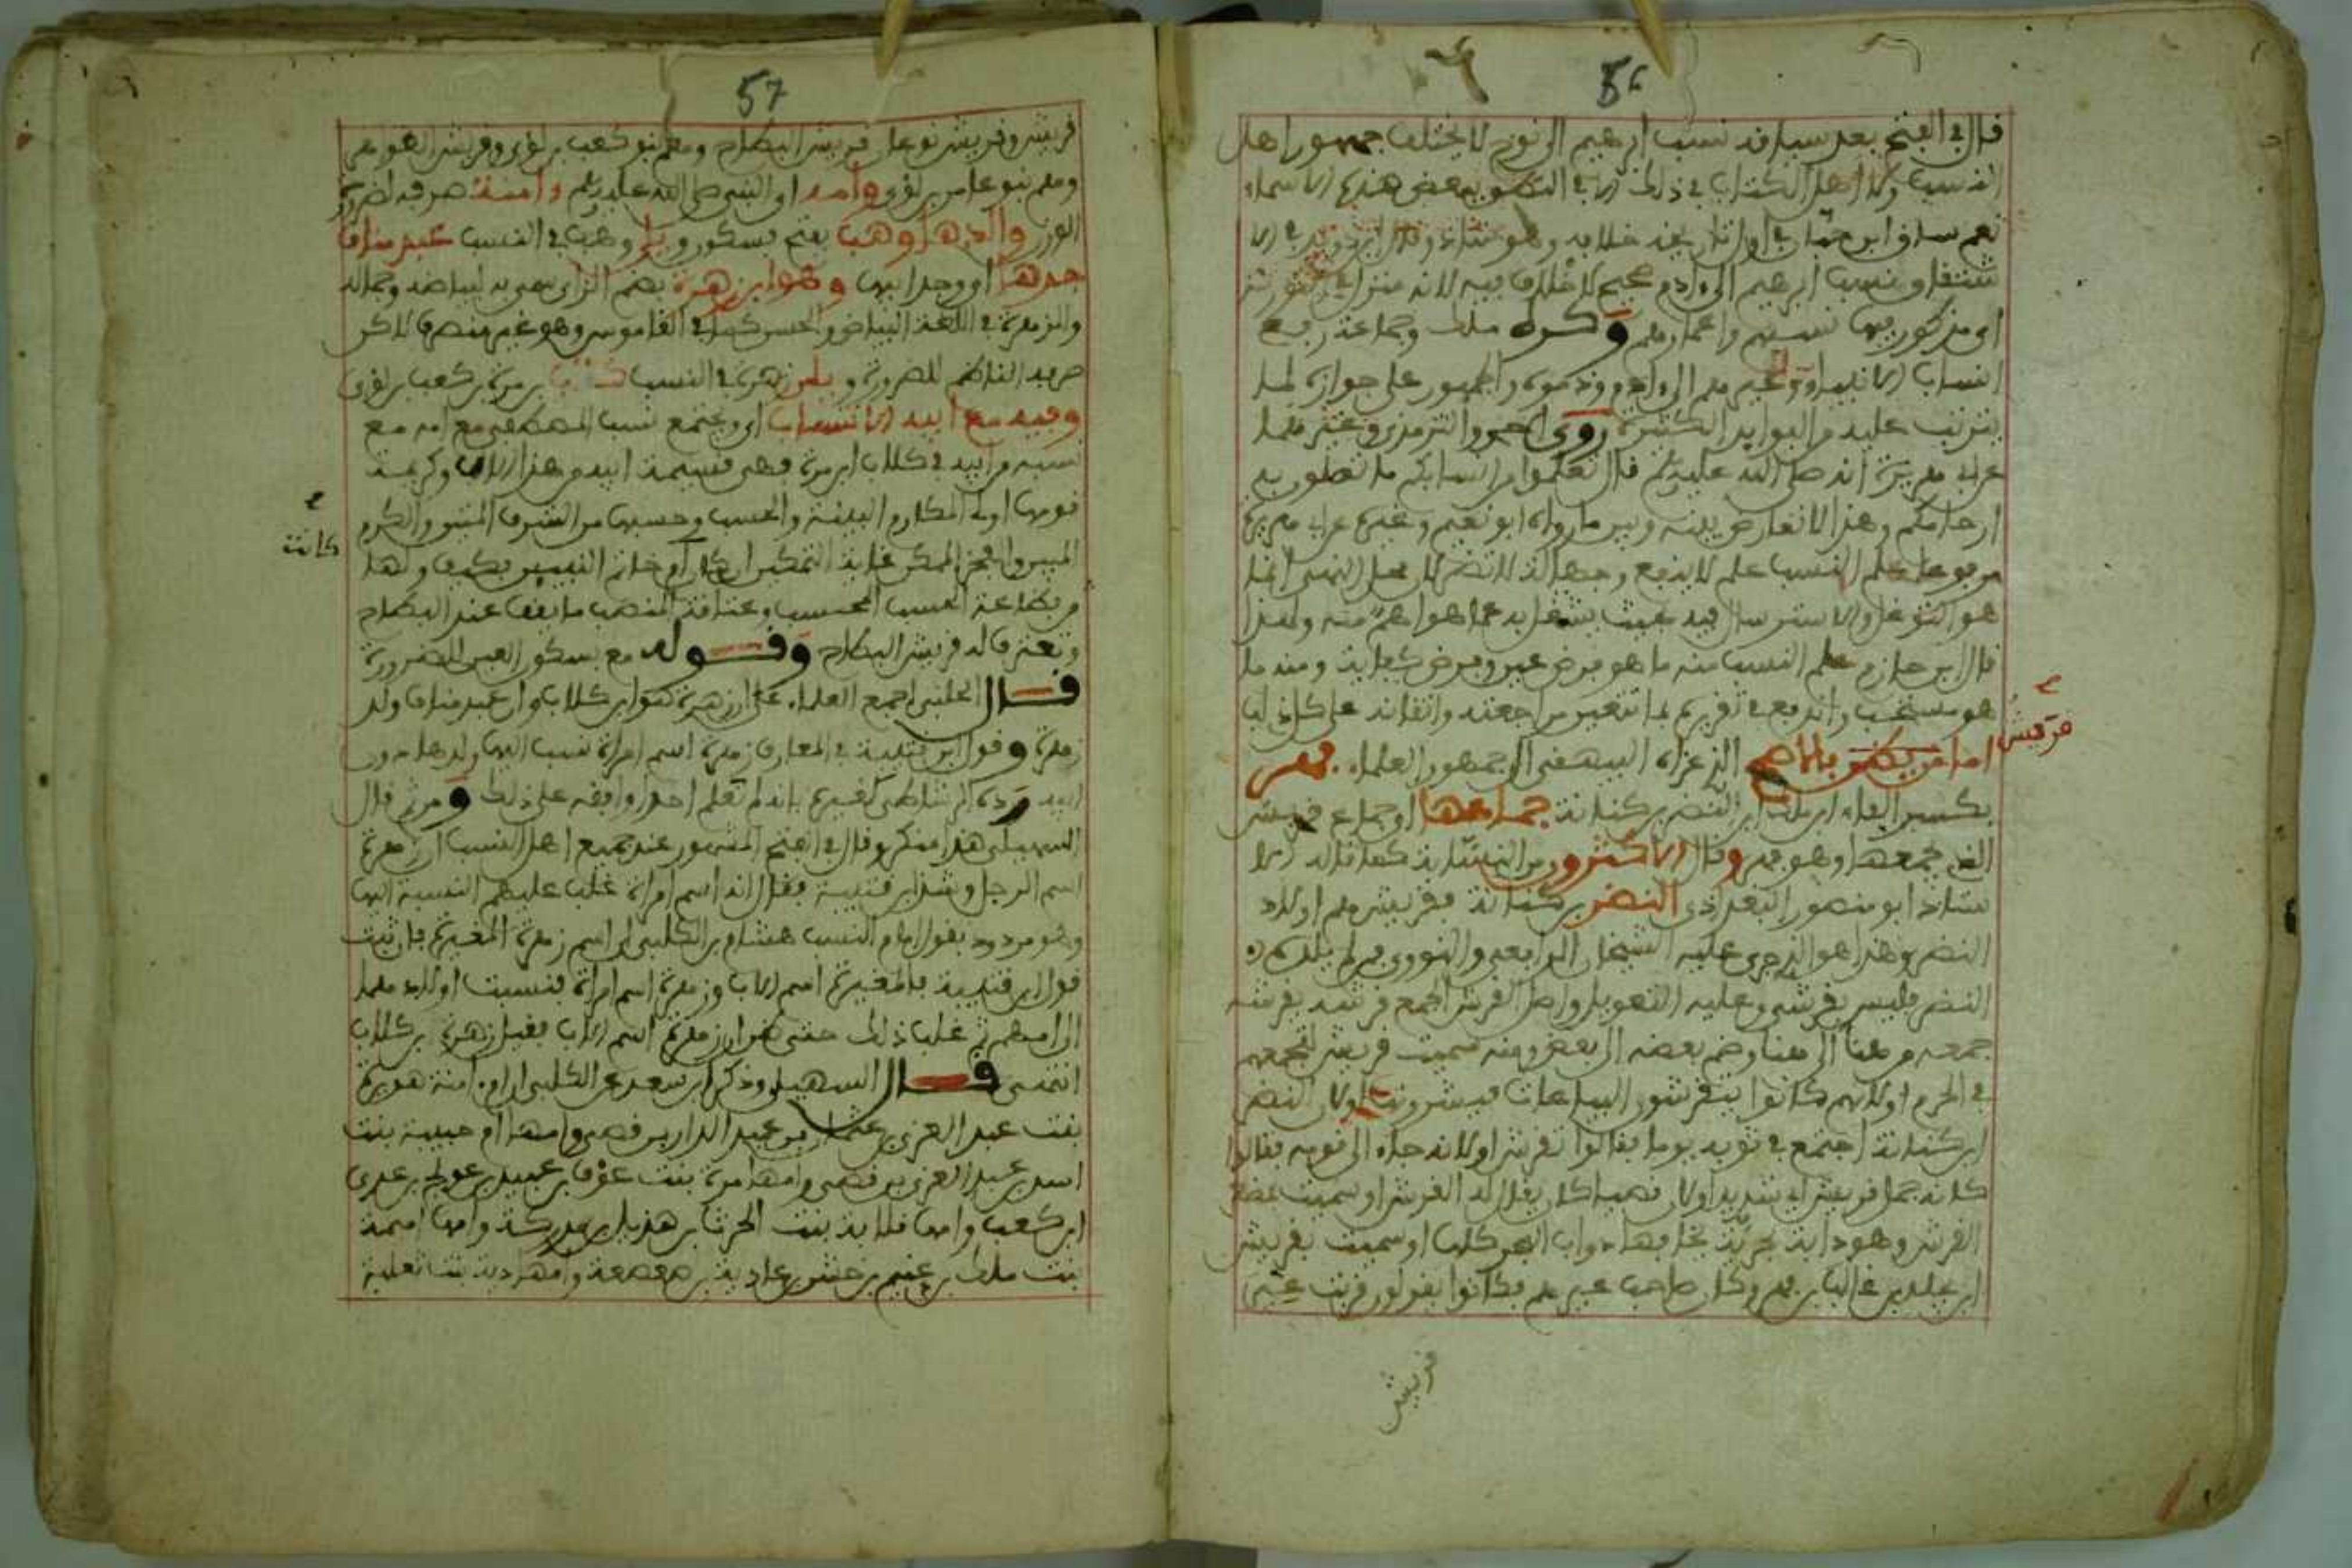 56
قال في الفتح بعد سياقه نسب ابرهيم الى نوح لا يختلف جمهور اهل
النسب ولا اهل الكتاب في ذلك الا في النطق ببعض هذه الاسماء
نعم ساق ابن حبان في اول تاريخه خلافه وهو شاذ وقال ابن دريد في الا
شتقاق ونسب ابرهيم الى ءادم صحيح لا خلاف فيه لانه منزل في التورية
اي مذكور فيها نسبهم واعمارهم وكره ملك وجماعة رفع
انساب الانبياء وغيرهم الى ءادم ونحوه والجمهور على جوازه لما
يترتب عليه من الفوايد الكثيرة روى احمد والترمذي وغيرهما
عن ابي هريرة انه صلى الله عليه وسلم قال تعلموا من انسابكم ما تصلون به
ارحامكم وهذا لا تعارض بينه وبين ما رواه ابو نعيم وغيره عن ابي هريرة
مرفوعا علم النسب علم لا ينفع وجهالة لا تضر لان محل النهي انما
هو التوغل والاسترسال فيه بحيث يشتغل به عما هو اهم منه ولهذا
قال ابن حازم علم النسب منه ما هو فرض عين وفرض كفاية ومنه ما
هو مستحب
قريش
اما من يكنى بالاصح الذي عزاه البيهقي الى جمهور العلماء فهر
بكسر الفاء ابن ملك ابن النضر بن كنانة جماعها او جماع قريش
الذي جمعها وهو فهر وقال الاكثرون من النسابة كما قاله الا
ستاذ ابو منصور البغدادي النضر بن كنانة فقريش هم اولاد
النضر وهذا هو الذي جرى عليه الشيخان الرافعي والنووي فمن لم يلده
النضر فليس بقرشي وعليه التعويل واصل القرش الجمع قرشه يقرشه
جمعه من هنا الى هنا وضم بعضه الى بعض ومنه سميت قريش لتجمعهم
في الحرم او لانهم كانوا يتقرشون البياعات فيشترونها او لان النضر
ابن كنانة اجتمع في ثوبه يوما فقالوا تقرش او لانه جاء الى قومه فقالوا
كانه جمل قريش اي شديد او لان قصيا كان يقال له القرشي او سميت بمصغر
القرش وهو دابة بحرية تخافها دواب البحر كلها او سميت بقريش
ابن مخلد بن غالب بن فهر وكان صاحب عيرهم فكانوا يقولون قدمت عير
قريش
57
قريش وقريش نوعان قريش البطاح وهم بنو كعب بن لؤي وقريش الظواهر
وهم بنو عامر بن لؤي وامه اي النبي صلى الله عليه وسلم ءامنة صرفه لضرورة
الوزن والدها وهب بفتح فسكون ويلي وهب في النسب عبد مناف
جدها اي وجد ابيها وهو ابن زهرة بضم الزاي سمي به لبياضه وجماله
والزهرة في اللغة البياض والحسن كما في القاموس وهو غير منصرف لاكن
صرفه الناظم للضرورة ويلي زهرة في النسب كلاب بن مرة بن كعب بن لؤي
وفيه مع ابيه الانتساب اي ويجتمع نسب المصطفى مع امه مع
نسبه من ابيه في كلاب ابن مرة فهي قسيمة ابيه من هذا الاب وكريمة
قومها اولي المكارم البينة والحسب وحسبها من الشرف المتين والكرم
كانت
المبين والفخر الممكن غاية التمكين ان كان ام خاتم النبيين يكفي ولها
من بضاعة الحسب المحسب وعتاقة المنصب ما يقف عند البطاح
وتعترف له قريش البطاح وقوله مع بسكون العين للضرورة
قال الحلبي اجمع العلماء على ان زهرة هو ابن كلاب وان عبد مناف ولد
زهرة وقول ابن قتيبة في المعارف زهرة اسم امراة نسب اليها ولدها دون
ابيه رده الشاطبي كغيره بانه لم نعلم احدا وافقه على ذلك ومن ثم قال
السهيلي هذا منكر وقال في الفتح المشهور عند جميع اهل النسب ان زهرة
اسم الرجل وشذ ابن قتيبة فقال انه اسم امراة غلب عليهم النسبة اليها
وهو مردود بقول امام النسب هشام بن الكلبي ان اسم زهرة المغيرة فان ثبت
قول ابن قتيبة فالمغيرة اسم الاب وزهرة اسم امراة فنسبت اولادهما
الى امهم ثم غلب ذلك حتى ظن ان زهرة اسم الاب فقيل زهرة بن كلاب
انتهى قال السهيلي وذكر ابن سعد عن الكلبي ان ام ءامنة هي برة
بنت عبد العزى بن عثمان بن عبد الدار بن قصي وامها ام حبيبة بنت
اسد بن عبد العزى بن قصي وامها برة بنت عوف بن عبيد بن عويج بن عدي
ابن كعب وامها قلابة بنت الحرث بن هذيل بن مدركة وامها اميمة
بنت ملك بن غنم بن حنش بن عادية بن صعصعة وامها دبة بنت ثعلبة